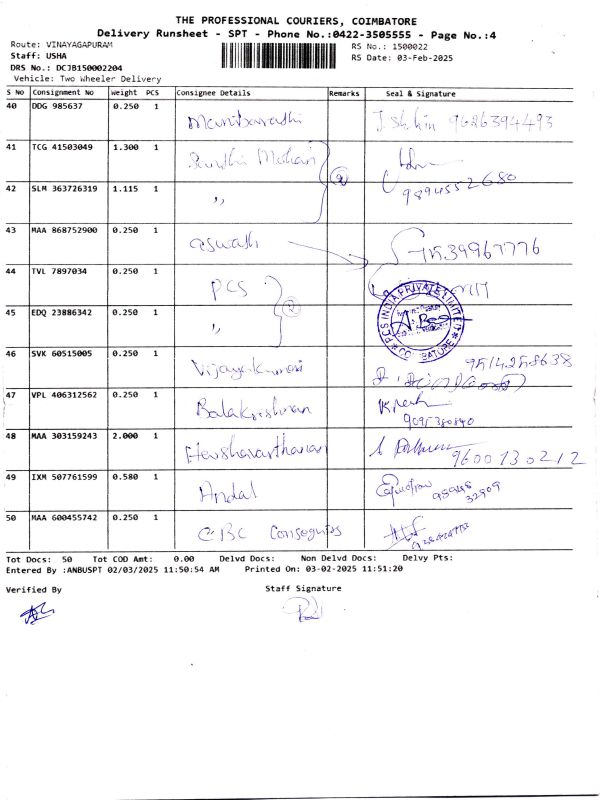 THE PROFESSIONAL COURIERS, COIMBATORE
Delivery Runsheet - SPT - Phone No.:0422-3505555 - Page No.:4
Route: VINAYAGAPURAM
RS No.: 1500022
Staff: USHA
RS Date: 03-Feb-2025
DRS No.: DCJB150002204
Vehicle: Two Wheeler Delivery
S No Consignment No Weight PCS Consignee Details Remarks Seal & Signature
40 DDG 985637 0.250 1 Manibarathi 9626394493
41 TCG 41503049 1.300 1 Mohan
42 SLM 363726319 1.115 1 " 9894552680
43 MAA 868752900 0.250 1 aswath
44 TVL 7897034 0.250 1 PCS
45 EDQ 23886342 0.250 1 " PCS INDIA PRIVATE LIMITED COIMBATORE
46 SVK 60515005 0.250 1 Vijayakumari
47 VPL 406312562 0.250 1 Balakrishnan 9095380840
48 MAA 303159243 2.000 1 9600130212
49 IXM 507761599 0.580 1 Andal
50 MAA 600455742 0.250 1
Tot Docs: 50 Tot COD Amt: 0.00 Delvd Docs: Non Delvd Docs: Delvy Pts:
Entered By :ANBUSPT 02/03/2025 11:50:54 AM Printed On: 03-02-2025 11:51:20
Verified By Staff Signature